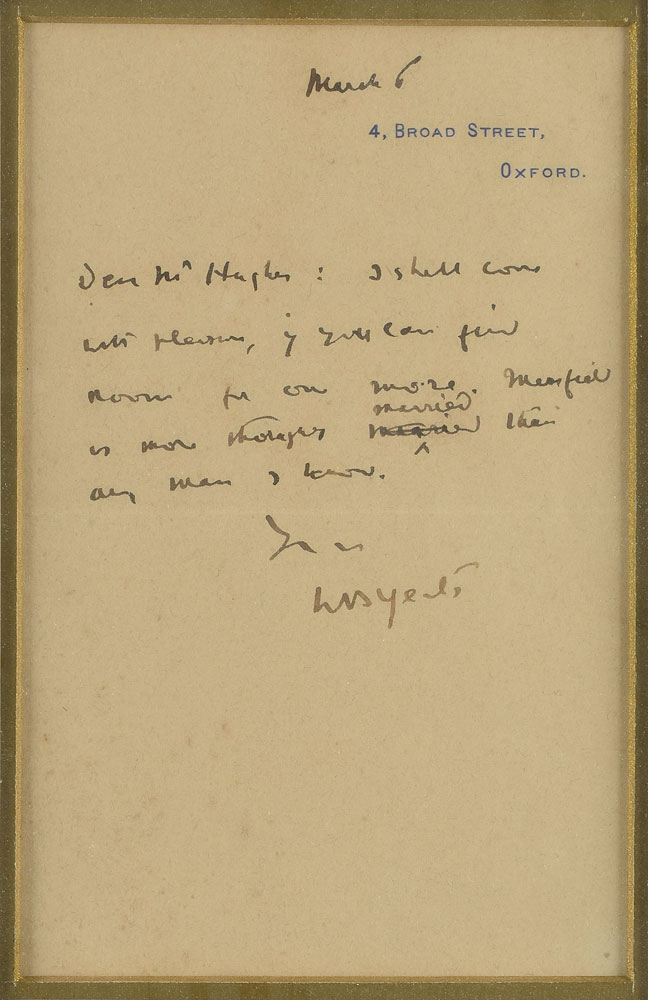 March 6
4, BROAD STREET,
OXFORD.
Dear Mr Hughes : I shall come
with pleasure, if you can find
room for one more. Masefield
married
is more thoroughly than
any man I know.
Yrs
WB Yeats